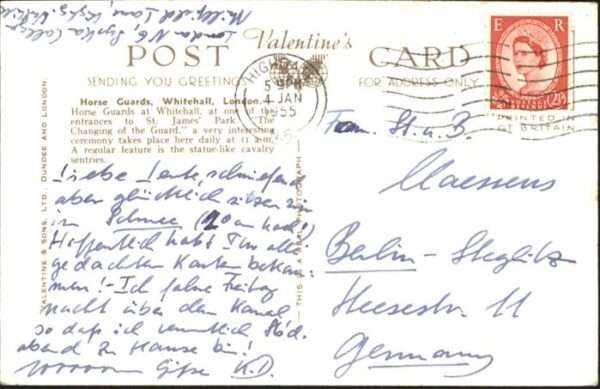 Highgate Lane, Kings
London N6, College
POST Valentine's CARD
SENDING YOU GREETINGS
FOR ADDRESS ONLY
HIGHGATE
5 PM
4 JAN
1955
E R
2½D
PRINTED IN
GREAT BRITAIN
Horse Guards, Whitehall, London.
Horse Guards at Whitehall, at one of the
entrances to St. James' Park. "The
Changing of the Guard," a very interesting
ceremony takes place here daily at 11 a.m.
A regular feature is the statue-like cavalry
sentries.
VALENTINE & SONS, LTD., DUNDEE AND LONDON.
THIS IS A REAL PHOTOGRAPH
Liebe Leute,
aber glücklich sitzen wir
im Schnee (20 cm hoch!)
Hoffentlich habt Ihr alle
gedachten Karten bekom-
men! - Ich fahre Freitag
nacht über den Kanal
so daß ich
abend zu Hause bin!
Grüße K.D.
Fam. St. u. B.
Claessens
Berlin-Steglitz
Heesestr. 11
Germany